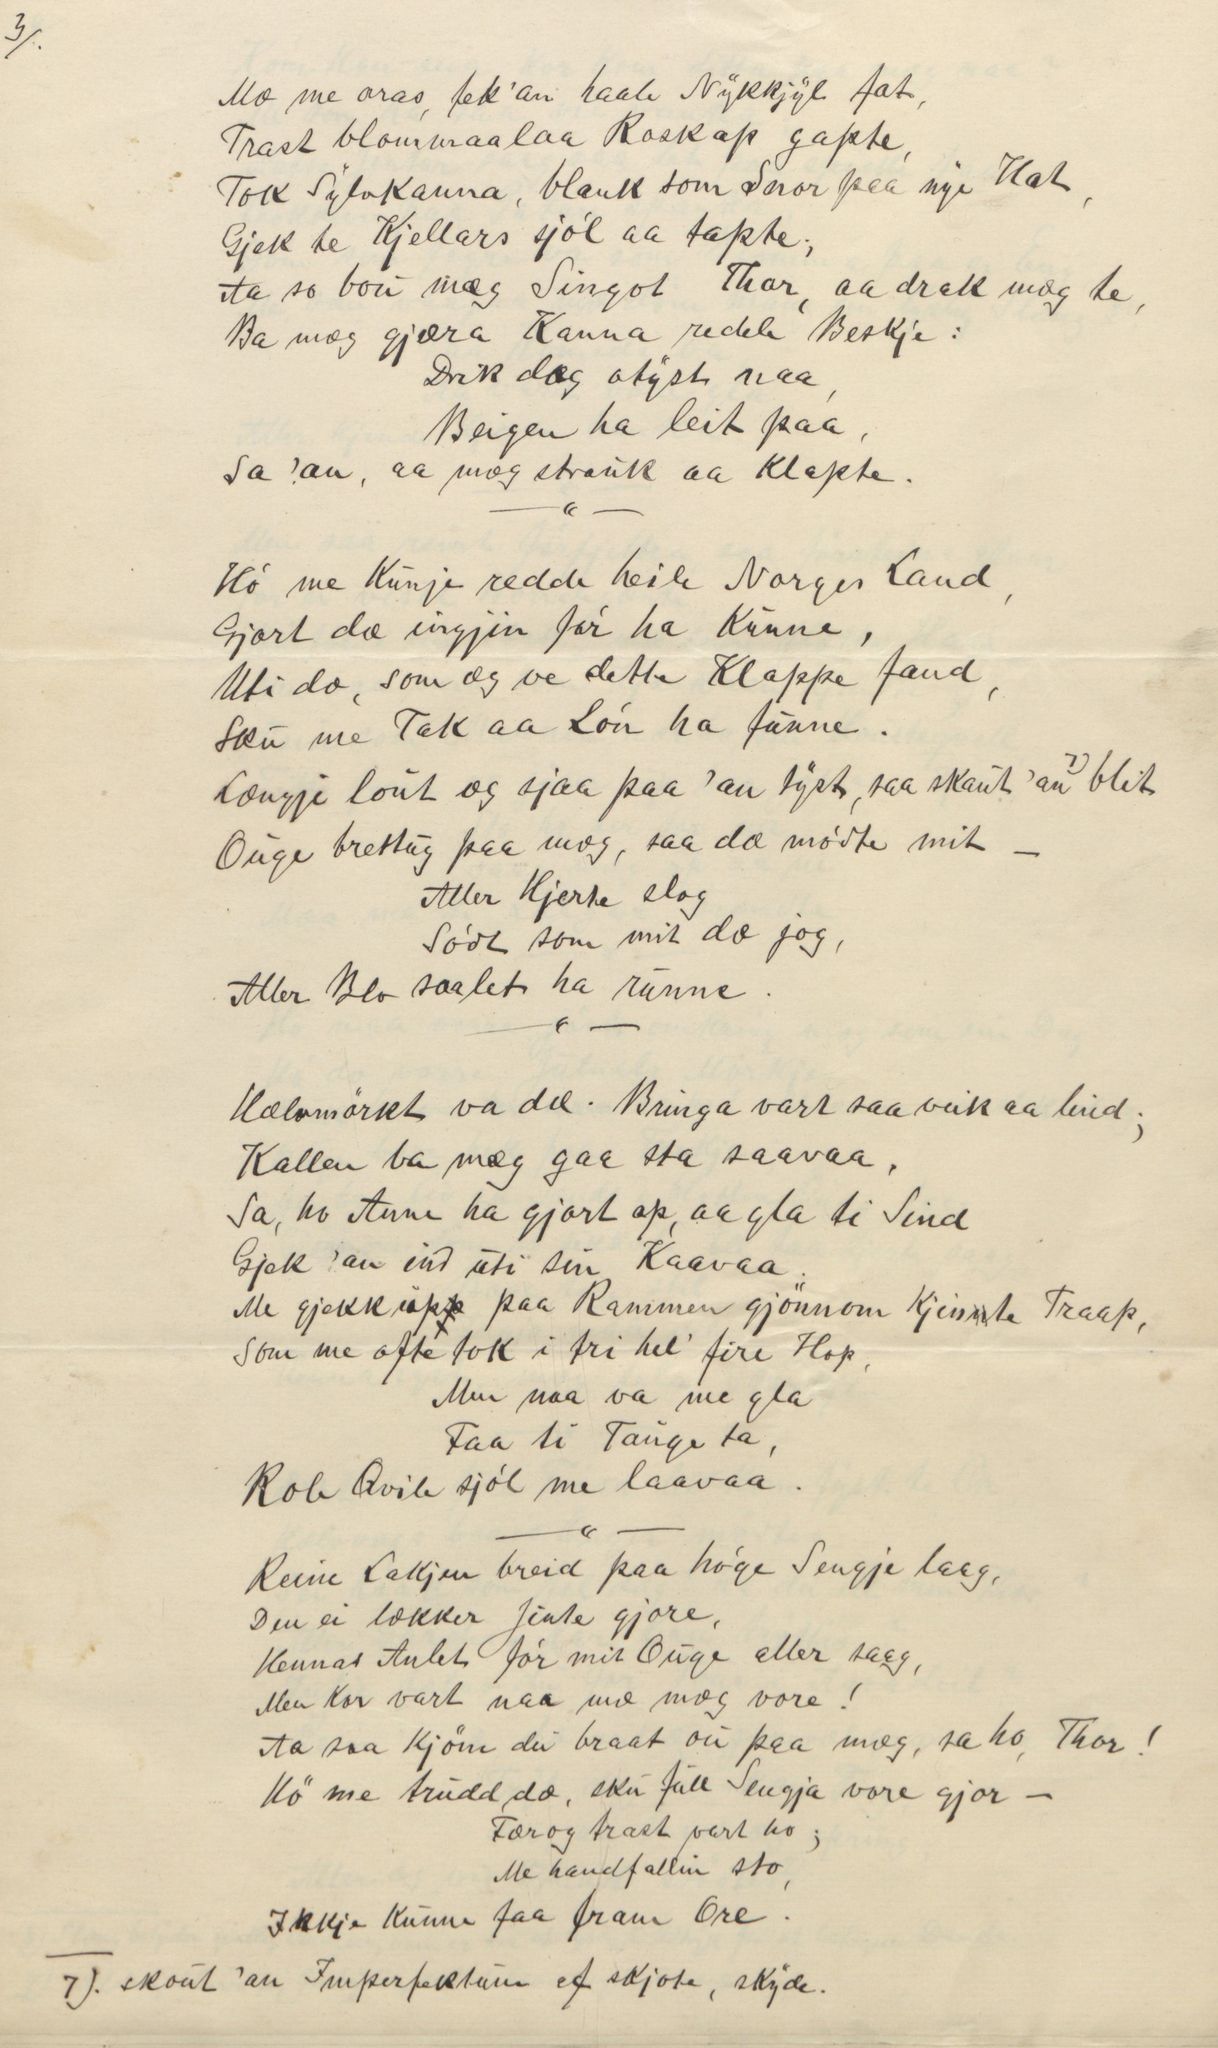 3/.
Mæ me oras, fek 'an haale Nÿkkjÿl fat,
Trast blommaalaa Roskap gapte,
Tok Sÿlvkanna, blank som Snor paa nÿe Hat,
Gjek te Kjellars sjól aa tapte;
Aa so boú mæg Singot Thor, aa drak mæg te,
Ba mæg gjæra Kanna redele Beskje:
Drik dæg otÿst naa,
Beigen ha leit paa,
Sa 'an, aa mæg strauk aa klapte.
— " —
Hó me kunje redde heile Norges Land,
Gjort dæ ingjin fór ha kunne,
Uti dæ, som æg ve dette Klappe fand,
Sku me Tak aa Lón ha funne.
Længje lout æg sjaa paa 'an tÿst, saa skaut 'an 7) blit
Ouge brettug paa mæg, saa dæ módte mit —
Aller Hjerte slog
Sódt som mit dæ jog,
Aller Blo saalets ha runne.
— " —
Hælvmörkt va dæ. Bringa vart saa veik aa lind;
Kallen ba mæg gaa sta saavaa,
Sa, ho Anne ha gjort op, aa gla ti Sind
Gjek 'an ind uti sin Kaavaa.
Me gjekk upp paa Rammen gjönnom kjinnte Traap,
Som me ofte tok i tri hel' fire Hop,
Men naa va me gla
Faa ti Tauge ta,
Role Qvile sjól me laavaa.
— " —
Reine Lakjen breid paa hóge Sengje laag,
Den ei lækker Jinte gjore,
Hennas Anlet fór mit Ouge aller saag,
Men kor vart naa mæ mæg vore!
Aa saa kjöm du braat ou paa mæg, sa ho, Thor!
Hó me trudd dæ, sku full Sengja vore gjor —
Færog trast vart ho;
Me handfallin sto,
Ikkje kunne faa fram Ore.
7). skout 'an Imperfektum af skjote, skÿde.